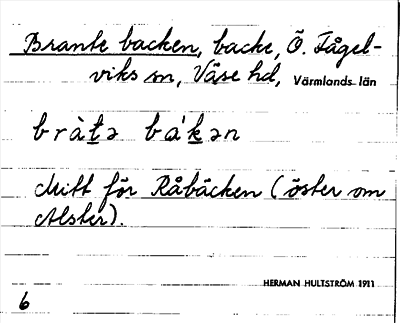 Brante backen, backe, Ö. Fågel-
viks sn, Väse hd, Värmlands län
bràt̲ə bák̲ən
Mitt för Råbäcken (öster om
Alster).
HERMAN HULTSTRÖM 1911
6